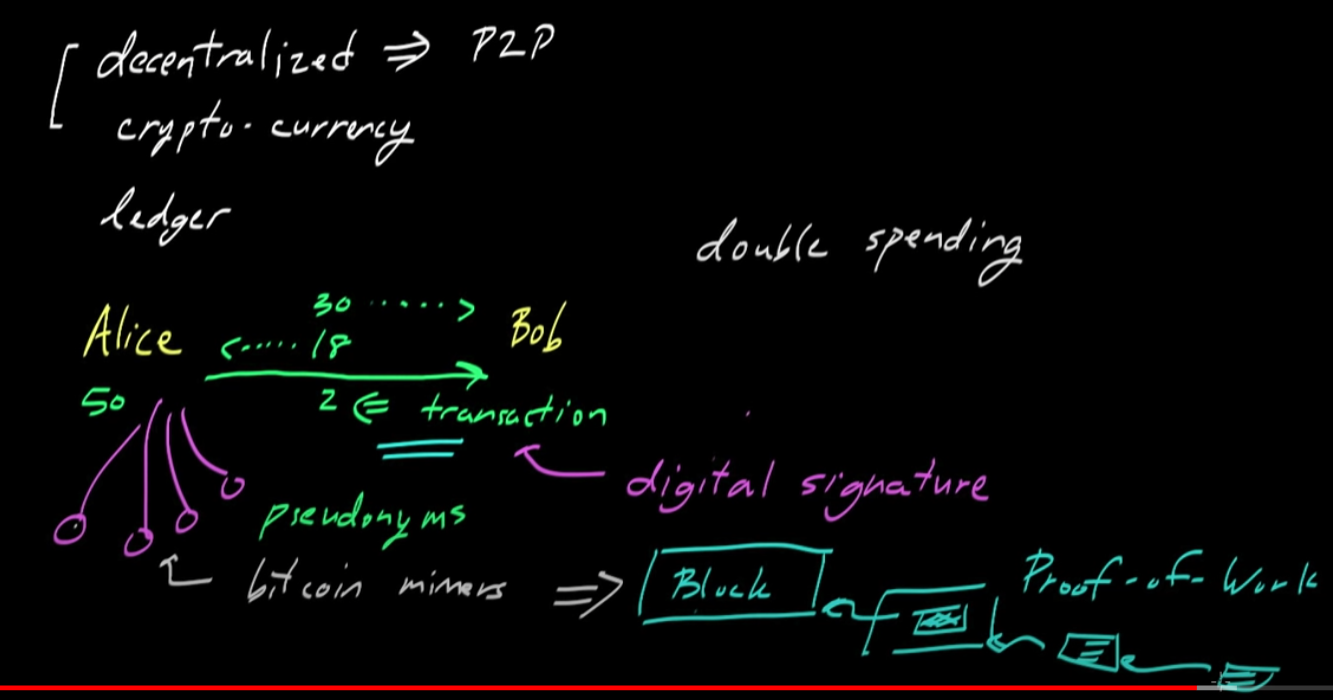 decentralized ⇒ P2P
crypto-currency
ledger
double spending
30 ·····>
Alice <····· 18 Bob
50 2 ⇐ transaction
digital signature
pseudonyms
bitcoin miners ⇒ Block Proof-of-Work